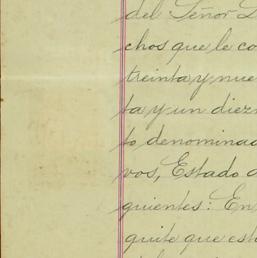 del Señor
chos que le co
treinta y nue
ta y un diez
to denomina
vos, Estado d
guientes: En
quite que est